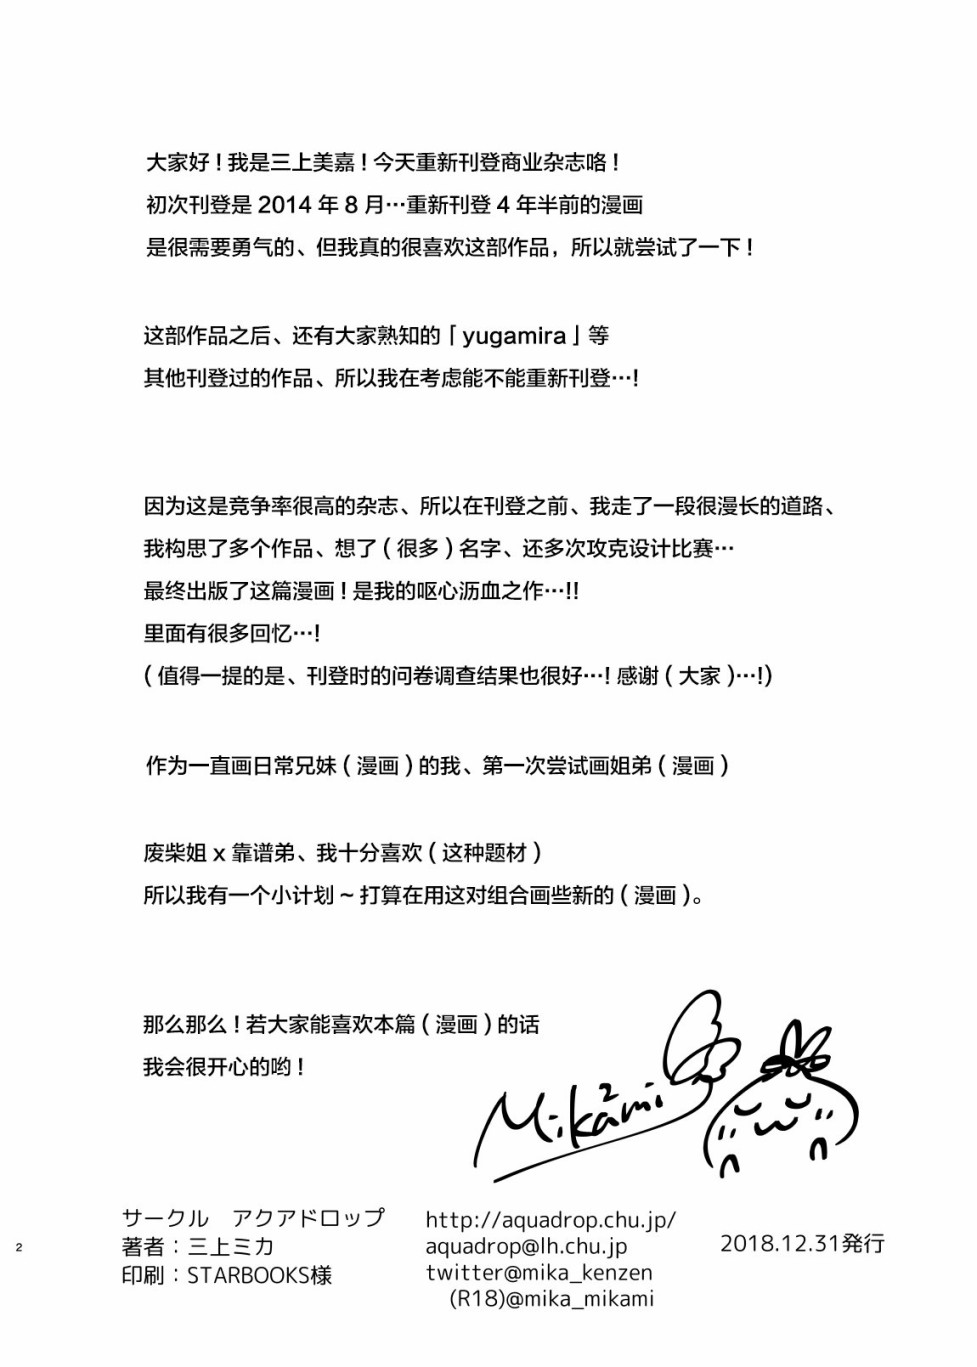 大家好！我是三上美嘉！今天重新刊登商业杂志咯！
初次刊登是 2014 年 8 月…重新刊登 4 年半前的漫画
是很需要勇气的、但我真的很喜欢这部作品，所以就尝试了一下！
这部作品之后、还有大家熟知的「yugamira」等
其他刊登过的作品、所以我在考虑能不能重新刊登…！
因为这是竞争率很高的杂志、所以在刊登之前、我走了一段很漫长的道路、
我构思了多个作品、想了（很多）名字、还多次攻克设计比赛…
最终出版了这篇漫画！是我的呕心沥血之作…!!
里面有很多回忆…！
（值得一提的是、刊登时的问卷调查结果也很好…！感谢（大家）…！）
作为一直画日常兄妹（漫画）的我、第一次尝试画姐弟（漫画）
废柴姐 x 靠谱弟、我十分喜欢（这种题材）
所以我有一个小计划～打算在用这对组合画些新的（漫画）。
那么那么！若大家能喜欢本篇（漫画）的话
我会很开心的哟！
Mika2mi
サークル　アクアドロップ
著者：三上ミカ
印刷：STARBOOKS様
http://aquadrop.chu.jp/
aquadrop@lh.chu.jp
twitter@mika_kenzen
(R18)@mika_mikami
2018.12.31発行
2